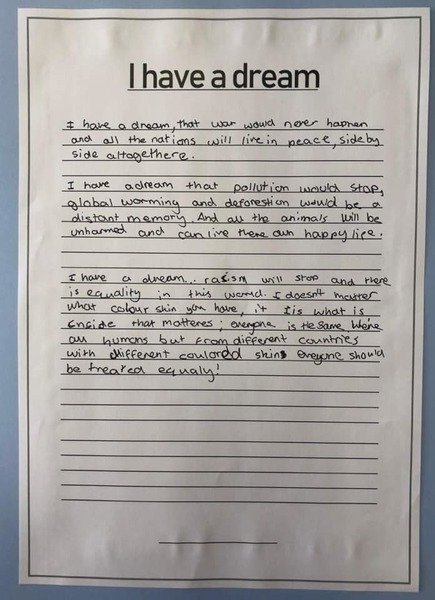 I have a dream
I have a dream, that war would never happen
and all the nations will live in peace, side by
side altogethere.
I have a dream that pollution would stop,
global worming and deforestion would be a
distant memory. And all the animals will be
unharmed and can live there own happy life.
I have a dream... rasism will stop and there
is equality in this world. I doesn't matter
what colour skin you have, it Iis what is
inside that matteres; everyone is the same. We're
all humans but from different countries
with different coulored skins everyone should
be treated equaly!